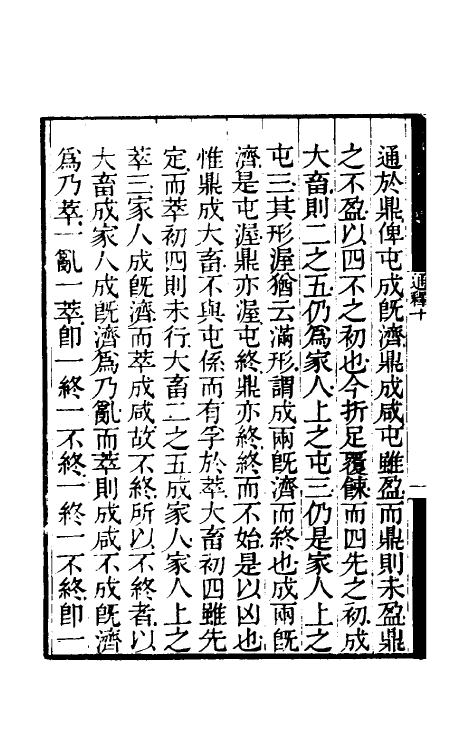 通於鼎俾屯成旣濟鼎成咸屯雖盈而鼎則未盈鼎
之不盈以四不之初也今折足覆餗而四先之初成
大畜則二之五仍爲家人上之屯三仍是家人上之
屯三其形渥猶云滿形謂成兩旣濟而終也成兩旣
濟是屯渥鼎亦渥屯終鼎亦終終而不始是以凶也
惟鼎成大畜不與屯係而有孚於萃大畜初四雖先
定而萃初四則未行大畜二之五成家人家人上之
萃三家人成旣濟而萃成咸故不終所以不終者以
大畜成家人成旣濟爲乃亂而萃則成咸不成旣濟
爲乃萃一亂一萃卽一終一不終一終一不終卽一
通釋十